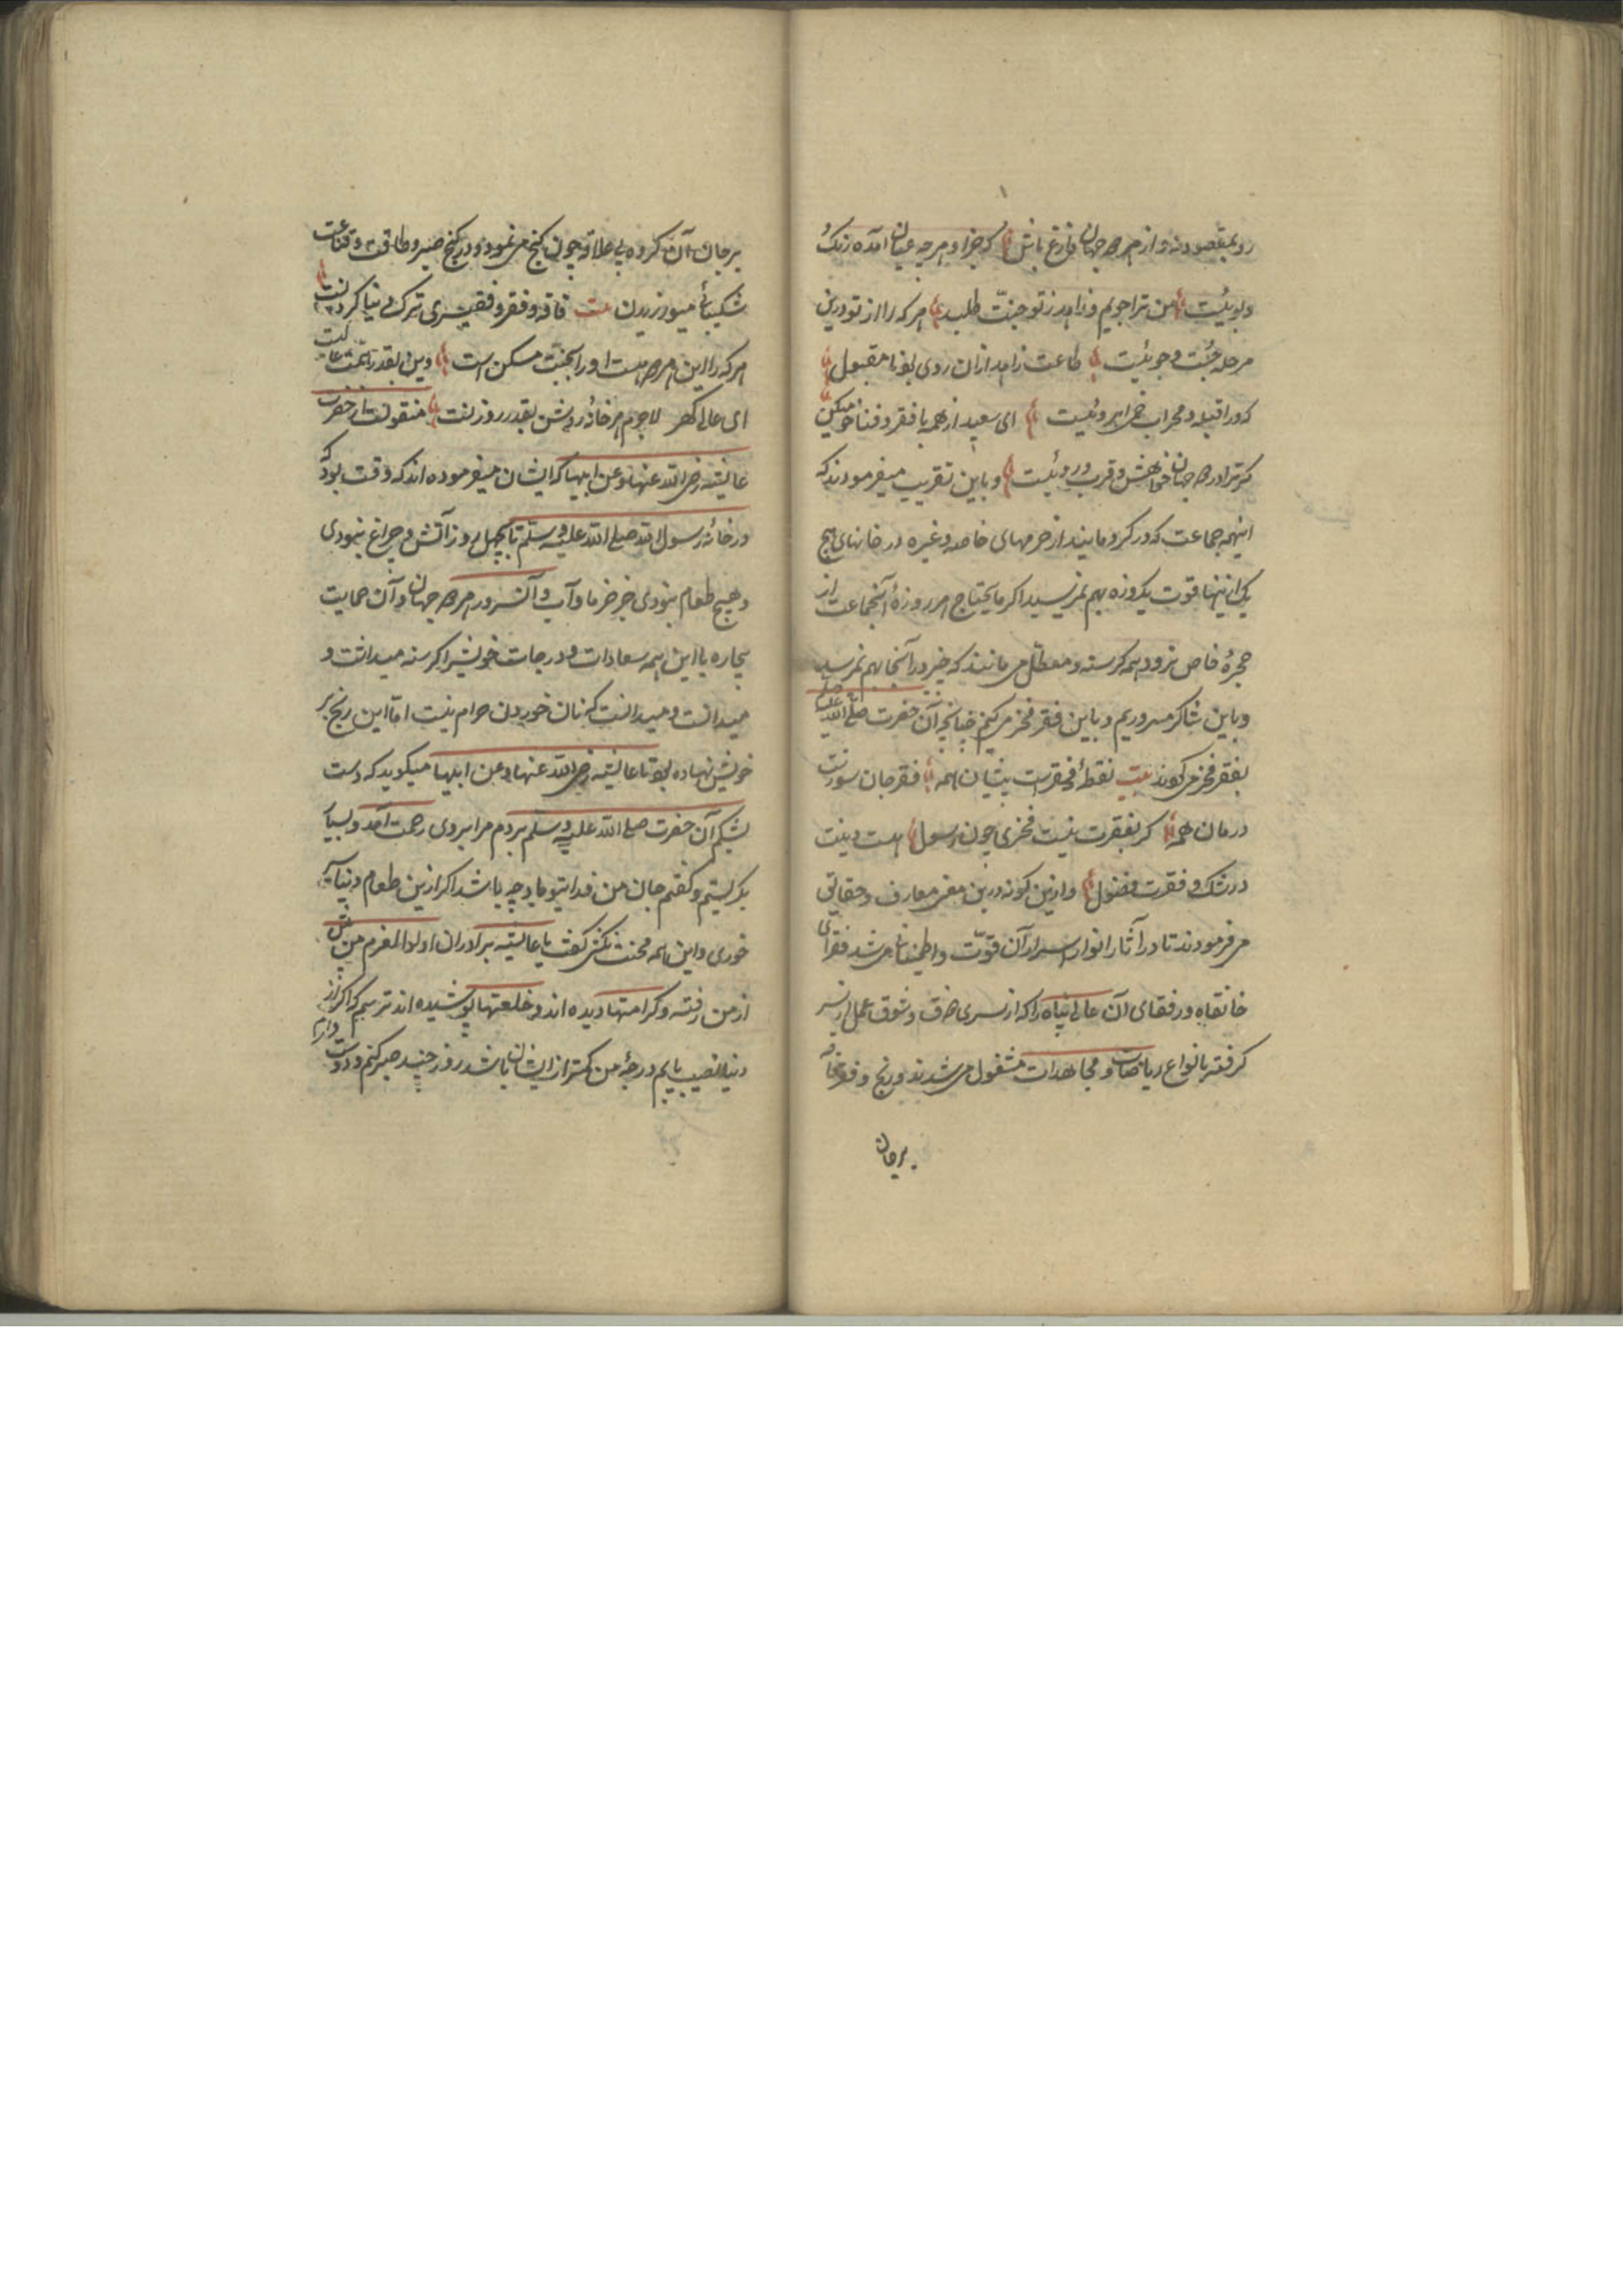 رو بمقصود نه و از هر دو جهان فارغ باش که جز او هر چه عیان آمده رنک
و بوئیست من ترا جویم و زاهد ز تو جنّت طلبد هر که را از تو درین
مرحله جست و جوئیست طاعت زاهد از ان روی بود نا مقبول
که ورا قبله و محراب خم ابروئیست ای سعید از همه با فقر و فنا خو میکن
کر ترا در دو جهان خواهش قرب وروئیست و باین تقریب میفرمودند که
اینهمه جماعت که در کرو مایند از حرمهای خاصه و غیره در خانهای هیچ
یکی ازینها قوت یکروزه بهم نمیرسید اکر ما یحتاج هر روزهٔ آنجماعت از
حجرهٔ خاص نرود همه کرسنه و معطّل می مانند که خیر در آنجا بهم نمیرسید
و باین شاکر مسروریم و باین فقر فخر میکنیم چنانچه آن حضرت صلی الله علیه
بفقر فخر می کوند بیت نقطهٔ فخر است بنشان همه فقر جان سوزت
درمان همه کر بفقرت نیست فخری چون رسول هست دینت
در شک و فقرت فضول و ازین کونه درین معنی معارف و حقایق
می فرمودند تا در آثار انوار اسرار آن قوّت و اطمینان می شد فقرای
خانقاه و رفقای آن عالی پناه را که از سری ذوق و شوق عمل از سر
کرفته بانواع ریاضات و مجاهدات مشغول می شدند و رنج و فقر و فاقه
بر جان
بر جان آن کروه بی علاقه چون کنج می نمود و در کنج صبر و طاقت و قناعت
شکیبائی میورزیدن بیت فاقه و فقر و فقیری ترک دنیا کردنست
هر که را این هر دو هست او را بجنّت مسکن است وین بقدر همّت عالیست
ای عالی کهر لاجرم هر خانهٔ روشن بقدر روزنست منقولست از حضرت
عایشه رضی الله عنها و عن ابیها که ایشان میفرموده اند که وقت بود که
در خانهٔ رسول الله صلی الله علیه و سلم تا بچهل روز آتش و چراغ نبودی
و هیچ طعام نبودی جز خرما و آب و آن سرور هر دو جهان و آن حمایت
بیچاره با این همه سعادات و درجات خویش را کرسنه میداشت و
میدانست و میدانست که نان خوردن حرام نیست امّا این رنج بر
خویش نهاده بود تا عایشه رضی الله عنها و عن ابیها میکوید که دست
بشکم آن حضرت صلی الله علیه و سلم بردم مرا بر وی رحمت آمد و بسیار
بکریستم و کفتم جان من فدای تو باد چه باشد اکر ازین طعام دنیا
خوری و این همه محنت نکشی کفت یا عایشه برادران اولوالعزم من پیش
از من رفته و کرامتها دیده اند و خلعتها پوشیده اند ترسم که اکر از
دنیا نصیب یابم درجهٔ من کمتر از ایشان باشد روز چند صبر کنم و دوست دارم